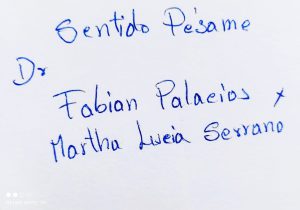 Sentido Pésame
Dr
Fabian Palacios x
Martha Lucia Serrano